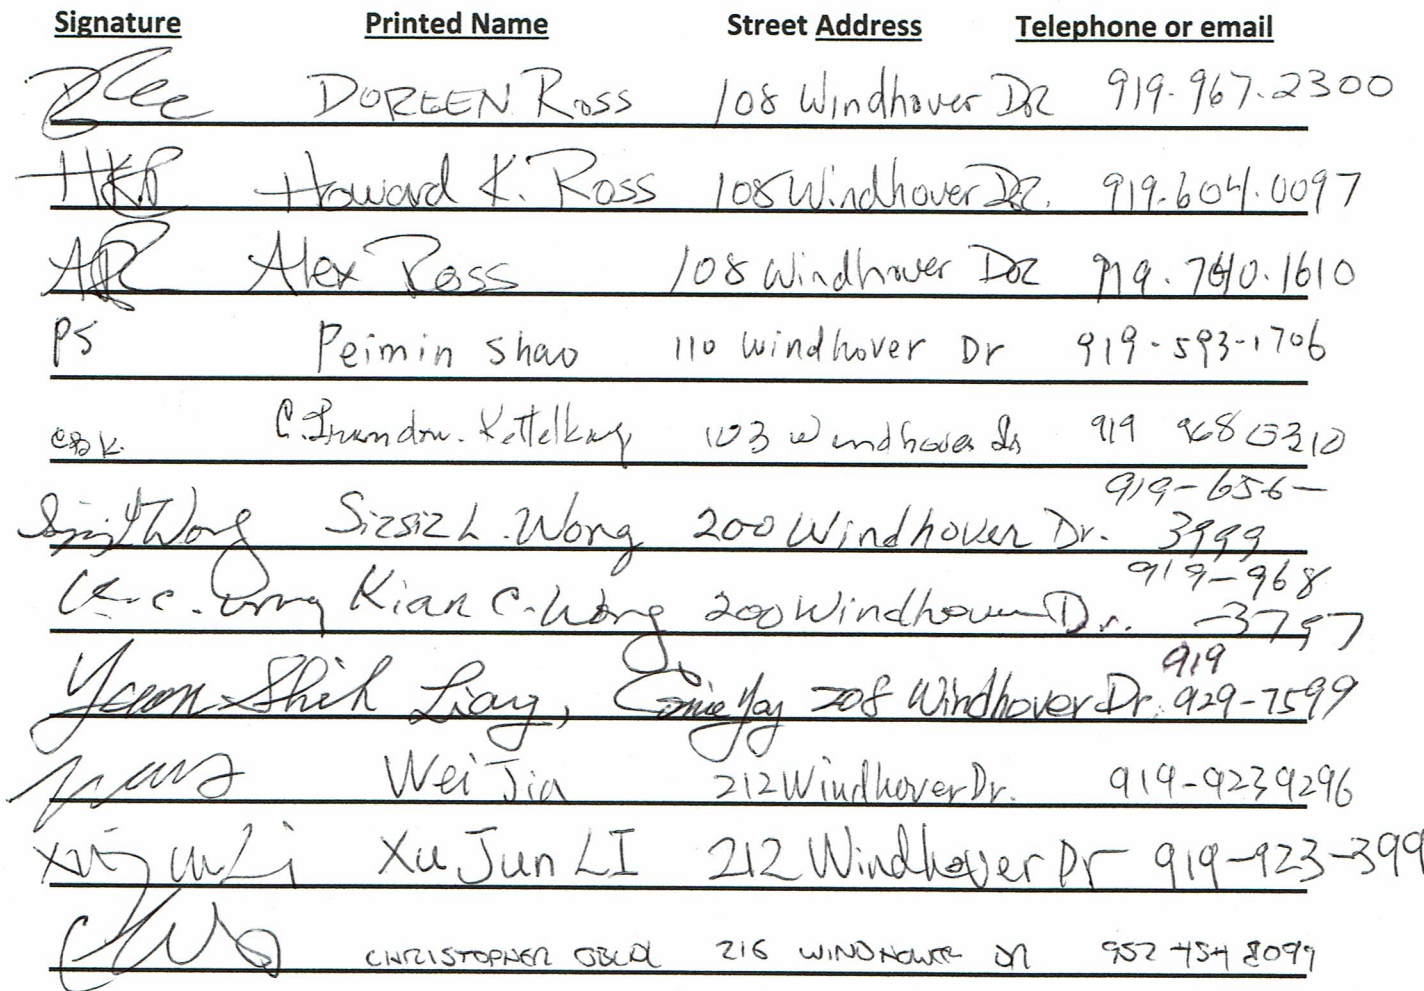 Signature Printed Name Street Address Telephone or email
DOREEN Ross 108 Windhover DR 919.967.2300
HKR Howard K. Ross 108 Windhover DR. 919.604.0097
AR Alex Ross 108 Windhover DR 919.740.1610
PS Peimin Shao 110 Windhover Dr 919-593-1706
CBK. C. Brandon. 103 Windhover Dr 919 968 0310
Wong Sizsiz L. Wong 200 Windhover Dr. 919-656-
3999
K.C. Wong Kian C. Wong 200 Windhover Dr. 919-968
-3797
Yuan-Shih Liang, 208 Windhover Dr. 919
929-7599
Wei Jia 212 Windhover Dr. 919-9239296
Xu Jun Li Xu Jun LI 212 Windhover Dr 919-923-399
CHRISTOPHER 216 WINDHOVER DR 952 454 8099